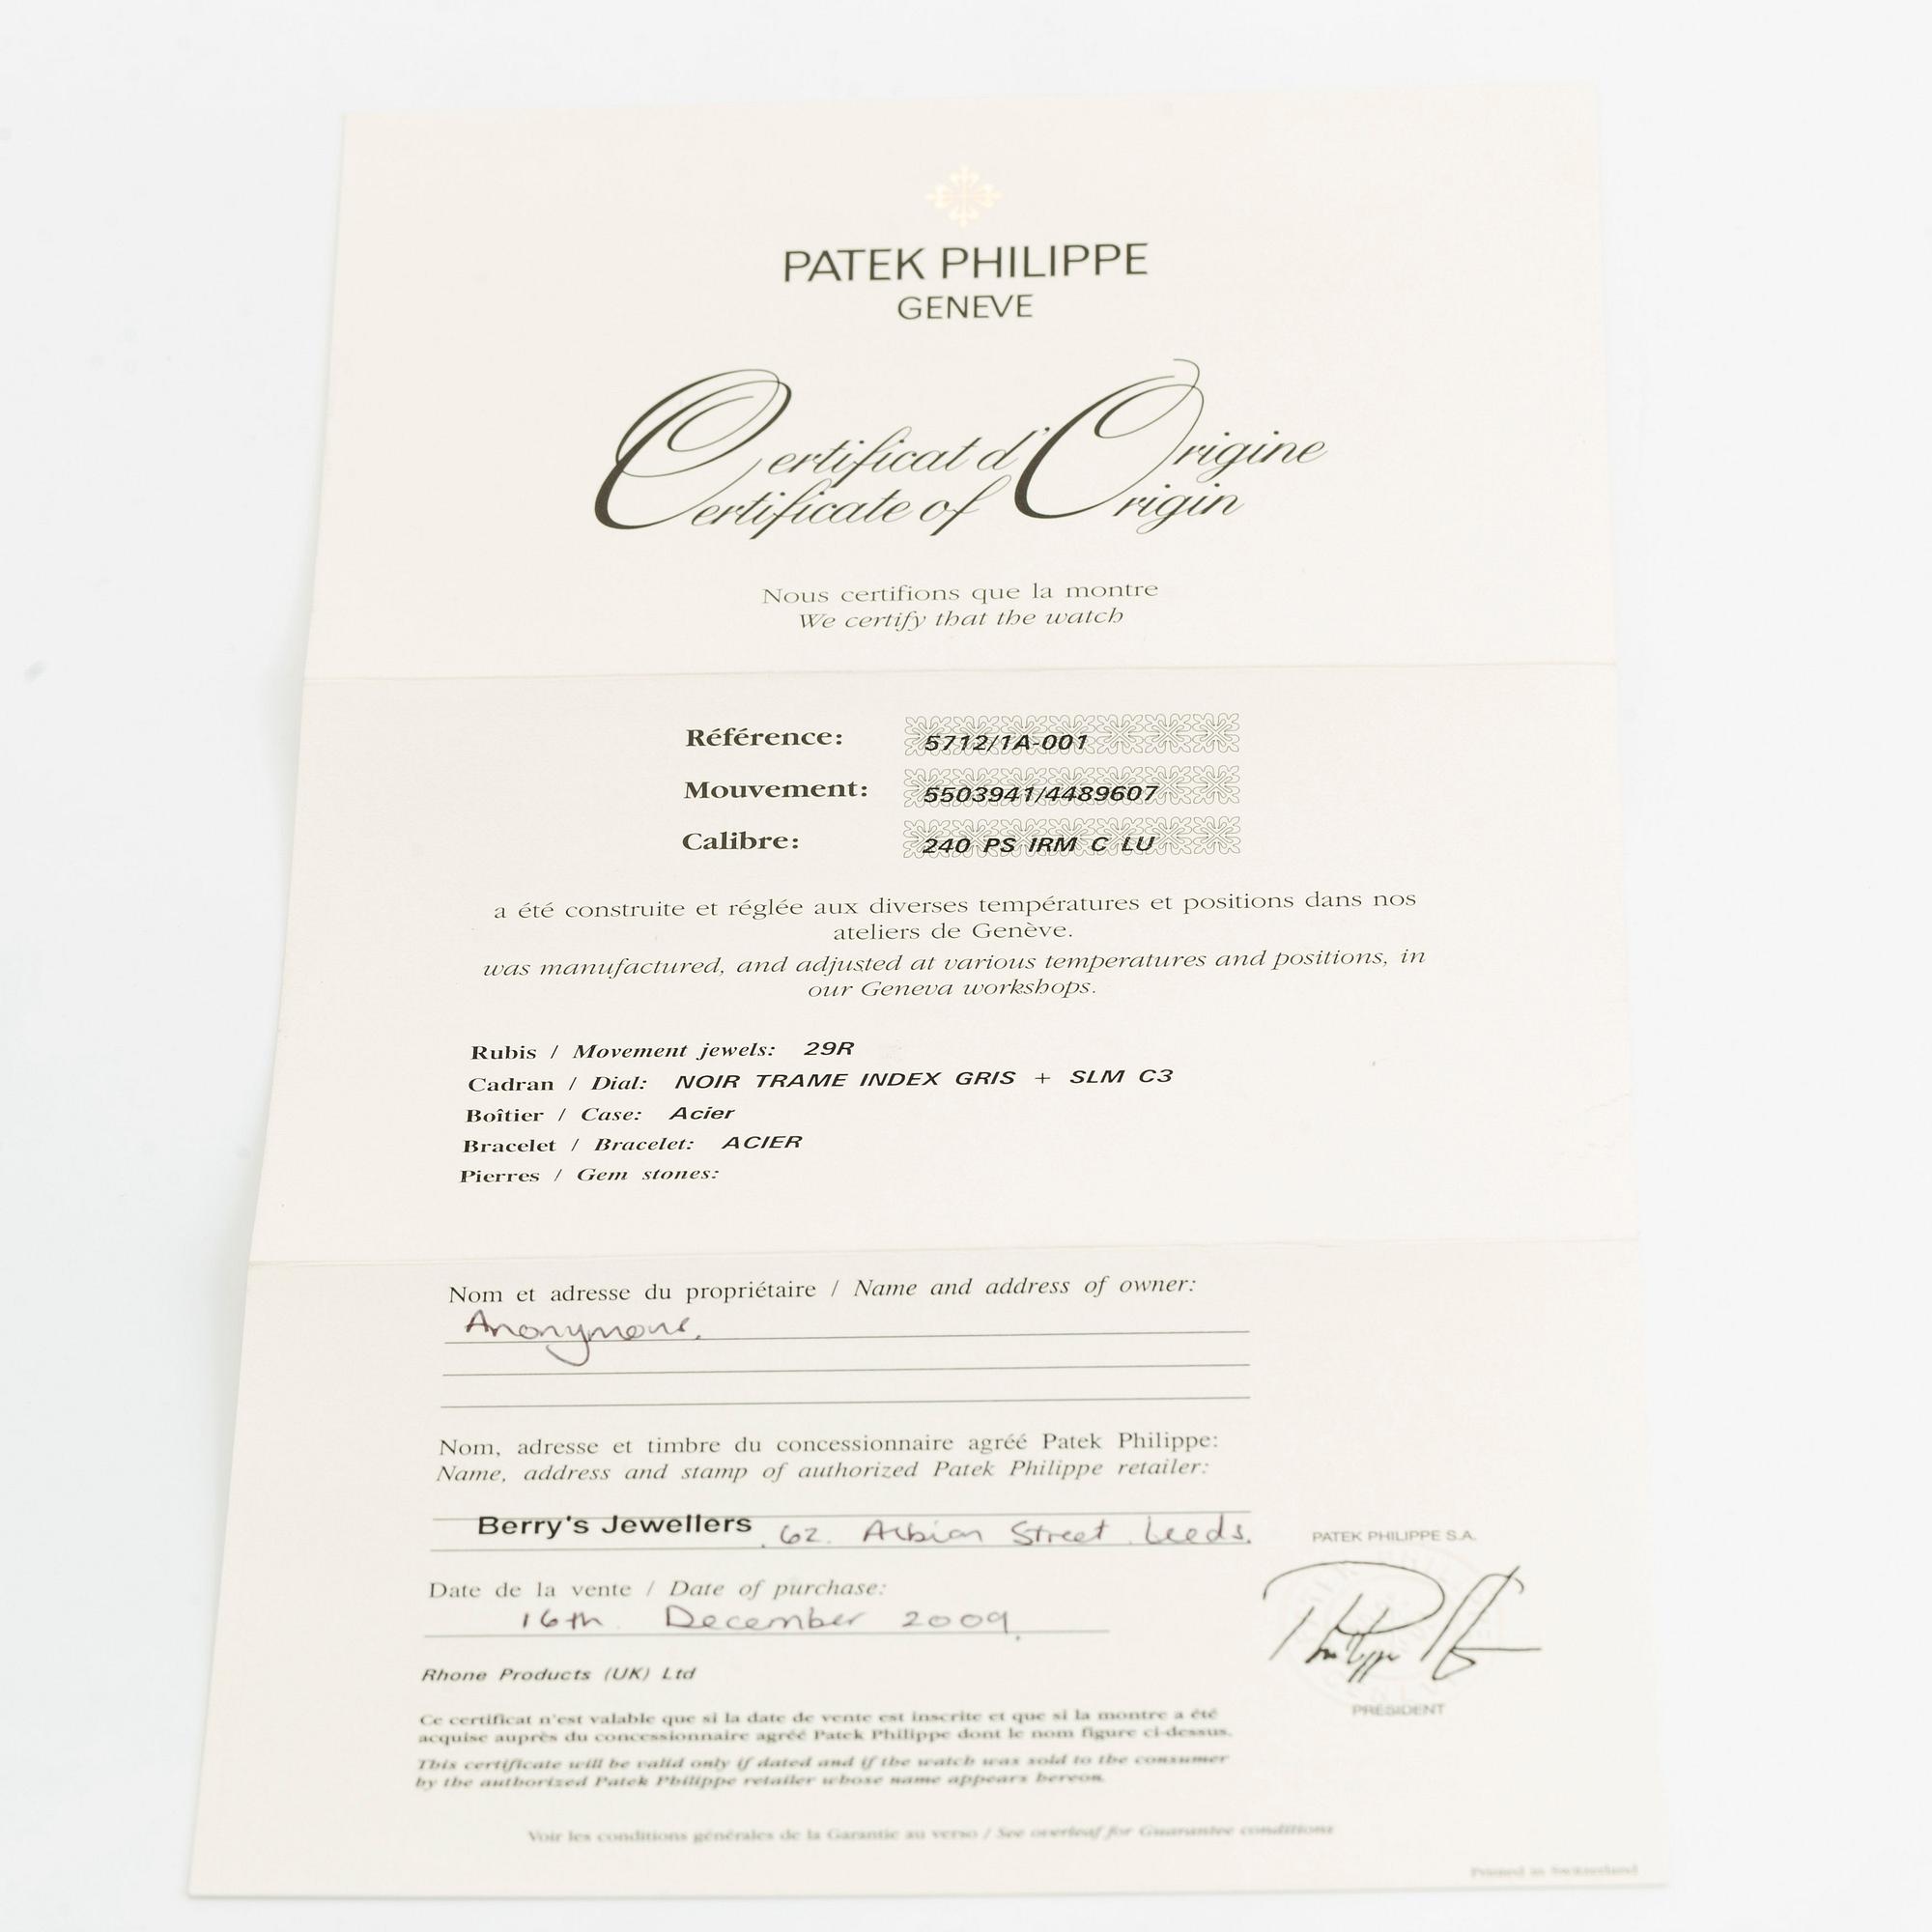 PATEK PHILIPPE
GENEVE
Certificat d'Origine
Certificate of Origin
Nous certifions que la montre
We certify that the watch
Référence: 5712/1A-001
Mouvement: 5503941/4489607
Calibre: 240 PS IRM C LU
a été construite et réglée aux diverses températures et positions dans nos
ateliers de Genève.
was manufactured, and adjusted at various temperatures and positions, in
our Geneva workshops.
Rubis / Movement jewels: 29R
Cadran / Dial: NOIR TRAME INDEX GRIS + SLM C3
Boîtier / Case: Acier
Bracelet / Bracelet: ACIER
Pierres / Gem stones:
Nom et adresse du propriétaire / Name and address of owner:
Anonymous.
Nom, adresse et timbre du concessionnaire agréé Patek Philippe:
Name, address and stamp of authorized Patek Philippe retailer:
Berry's Jewellers, 62. Albion Street Leeds.
PATEK PHILIPPE S.A.
Date de la vente / Date of purchase:
16th December 2009.
Rhone Products (UK) Ltd
PRÉSIDENT
Ce certificat n'est valable que si la date de vente est inscrite et que si la montre a été
acquise auprès du concessionnaire agréé Patek Philippe dont le nom figure ci-dessus.
This certificate will be valid only if dated and if the watch was sold to the consumer
by the authorized Patek Philippe retailer whose name appears hereon.
Voir les conditions générales de la Garantie au verso / See overleaf for Guarantee conditions
Printed in Switzerland